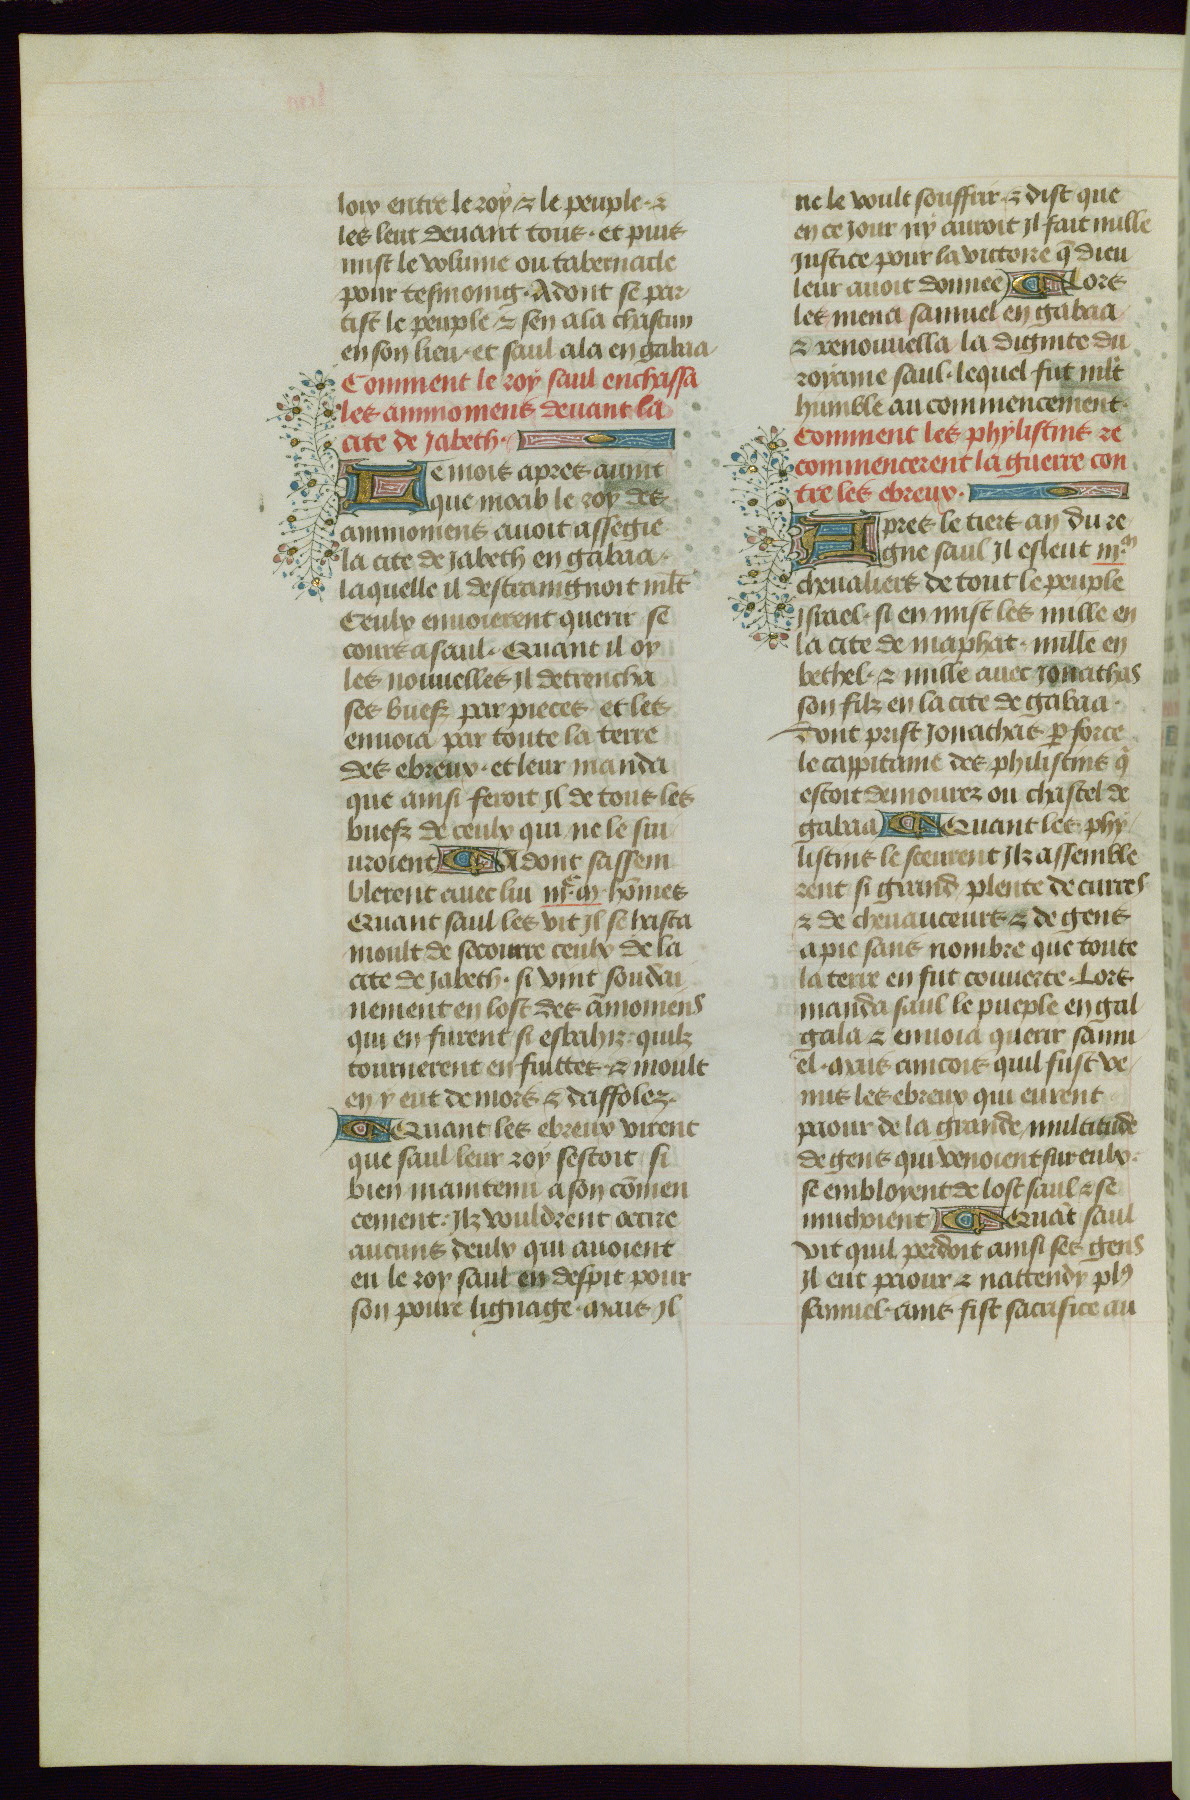 loy entre le roy & le peuple· &
les leut deuant tous· et puis
mist le volume ou tabernacle
pour tesmoing· Adont se par
tist le peuple & sen ala chascun
en son lieu· et saul ala en gabaa
Comment le roy saul enchassa
les ammoniens deuant la
cite de Jabeth·
Le mois apres auint
que moab le roy des
ammoniens auoit assegie
la cite de Jabeth en gabaa·
laquelle il destraingnoit ml̃t
Ceulx enuoierent querir se
cours a saul· Quant il oy
les nouuelles Jl detrencha
ses buefz par pieces· et les
enuoia par toute la terre
des ebreux· et leur manda
que ainsi feroit Jl de tous les
buefz de ceulx qui ne le sui
uroient Adont sassem
blerent auec lui iijᶜ·m· hõmes
Quant saul les vit Jl se hasta
moult de secourre ceulx de la
cite de Jabeth· si vint soudai
nement en lost des ãmoniens
qui en furent si esbahiz· quilz
tournerent en fuittes· & moult
en y eut de mors & daffolez·
Quant les ebreux virent
que saul leur roy sestoit si
bien maintenu a son cõmen
cement· Jlz vouldrent occire
aucuns deulx qui auoient
eu le roy saul en despit pour
son poure lignage· mais Jl
ne le voult souffrir· & dist que
en ce Jour ny auroit Jl fait nulle
Justice pour la victoire q̃ dieu
leur auoit donnee Lors
les mena samuel en gabaa
& renouuella la dignite du
royame saul· lequel fut ml̃t
humble au commencement·
Comment les phylistins re
commencerent la guerre con
tre les ebreux·
Apres le tiers an du re
gne saul Jl esleut iij·ᵐ
cheualiers de tout le peuple
Israel· si en mist les mille en
la cite de maphat· mille en
bethel· & mille auec Jonathas
son filz en la cite de gabaa·
Dont prist Jonathas ꝑ force
le cappitaine des philistins q̃
estoit demourez ou chastel de
gabaa Quant les phy
listins le sceurent Jlz assemble
rent si grand plente de curres
& de cheuauceurs & de gens
a pie sans nombre que toute
la terre en fut couuerte· Lors
manda saul le pueple en gal
gala & enuoia querir samu
el· mais aincois quil fust ve
nus les ebreux qui eurent
paour de la grande multitude
de gens qui venoient sur eulx·
se embloyent de lost saul & se
muchoient Quãt saul
vit quil perdoit ainsi ses gens
Jl eut paour & nattendy plꝰ
samuel· ains fist sacrifice au